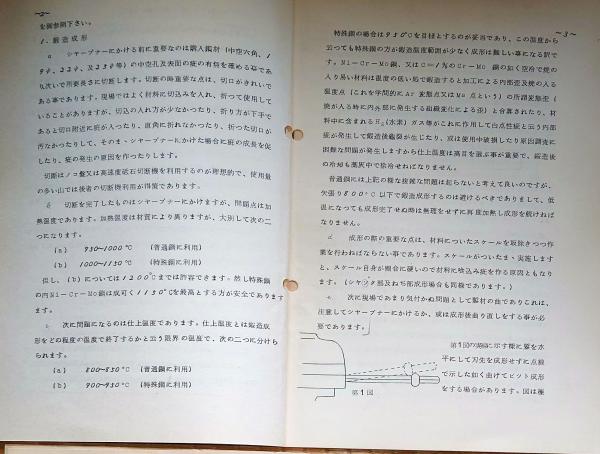 —2—
を御参照下さい。
1. 鍛造成形
a シャープナーにかける前に重要なのは購入鋼材(中空六角、1
9φ、22φ、及び25φ等)の中空孔及表面の疵の有無を確める事であ
り次いで用要長さに切断します。切断の時重要な点は、切口がきれいで
ある事であります。現場ではよく材料に切込みを入れ、折つて使用して
いることがありますが、切込の入れ方が少なかつたり、折り方が下手で
あると切口附近に疵が入つたり、直角に折れなかつたり、折つた切口が
汚なかつたりして、そのまゝシャープナーにかけた場合に疵の成長を促
したり、疵の発生の原因を作つたりします。
切断はノコ盤又は高速度砥石切断機を利用するのが理想的で、使用量
の多い山では後者の切断機利用が得策であります。
b 切断を完了したものはシャープナーにかけますが、問題点は加
熱温度であります。加熱温度は材質により異りますが、大別して次の二
つになります。
(a) 950~1000℃ (普通鋼に利用)
(b) 1000~1150℃ (特殊鋼に利用)
但し、(b)については1200℃までは許容できます。然し特殊鋼
の内Ni-Cr-Mo鋼は成可く1150℃を最高とする方が安全であります
ます。
c 次に問題になるのは仕上温度であります。仕上温度とは鍛造成
形をどの程度の温度で終了するかと云う限界の温度で、次の二つに分けら
られます。
(a) 800~850℃ (普通鋼に利用)
(b) 900~950℃ (特殊鋼に利用)
—3—
特殊鋼の場合は950℃を目標とするのが妥当であり、この温度から
云つても特殊鋼の方が鍛造温度範囲が少なく成形は難しい事になる訳で
す。Ni-Cr-Mo鋼、又はC=1%のCr-Mo鋼の如く空冷で焼の
入り易い材料は温度の低い処で鍛造すると加工による内部歪及焼の入る
温度点(これを学問的にAr変態点又はMs点という)の所謂変態歪(
焼が入る時に内外部に発生する組織変化による歪)と合算されたり、材
料中に含まれるH₂(水素)ガス等がこれに作用して白点性疵と云う内部
疵が発生して鍛造後亀裂が生じたり、或は使用中破損したり原因調査に
困難な問題が発生しますから仕上温度は高目を選ぶ事が重要で、鍛造後
の冷却も藁灰中で徐冷せねばなりません。
普通鋼には上記の様な複雑な問題は起らないと考えて良いのですが、
矢張り800℃以下で鍛造成形するのは避けるべきでありまして、低
温になつても成形完了せぬ時は無理をせずに再度加熱し成形を続けねば
なりません。
d 成形の際の重要な点は、材料についたスケールを取除きつつ作
業を行わねばならない事であります。スケールがついたまゝ実施します
と、スケール自身が割合に硬いので材料に喰込み疵を作る原因ともなり
ます。(シヤンク部及ねぢ部成形場合も同様であります。)
e 次に現場であまり気付かぬ問題として鋼材の曲りであり、これは、
注意してシャープナーにかけるか、或は成形後曲り直しをする事が必
要であります。
第1図の実線に示す様に鋼を水
平にして刃先を成形せずに点線
で示した如く曲げてビット成形
をする場合があります。図は極
第1図